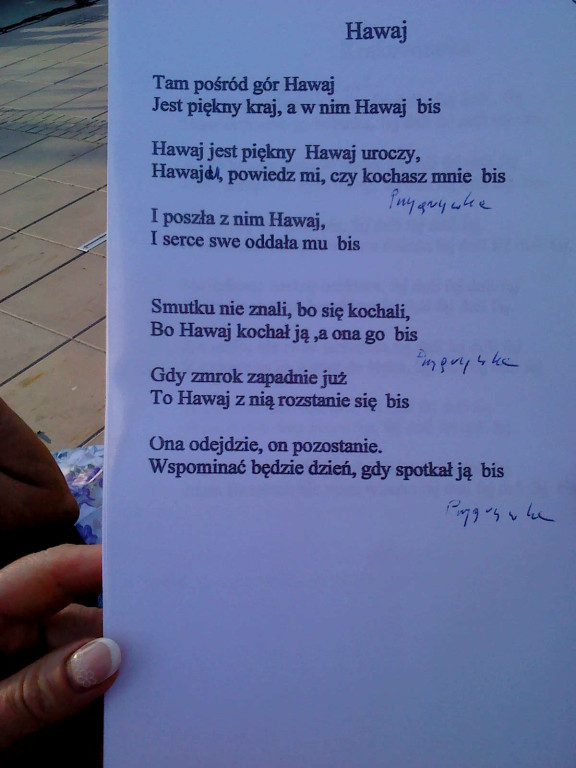 Hawaj
Tam pośród gór Hawaj
Jest piękny kraj, a w nim Hawaj bis
Hawaj jest piękny Hawaj uroczy,
Hawaju, powiedz mi, czy kochasz mnie bis
Przygrywka
I poszła z nim Hawaj,
I serce swe oddała mu bis
Smutku nie znali, bo się kochali,
Bo Hawaj kochał ją ,a ona go bis
Przygrywka
Gdy zmrok zapadnie już
To Hawaj z nią rozstanie się bis
Ona odejdzie, on pozostanie.
Wspominać będzie dzień, gdy spotkał ją bis
Przygrywka